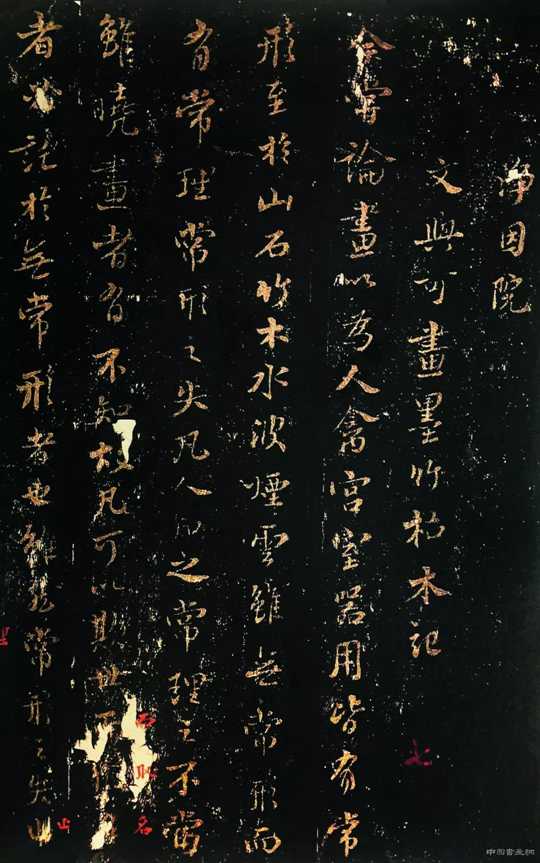 淨因院
文與可畫墨竹枯木記
余嘗論畫以為人禽宮室器用皆有常
形至於山石竹木水波煙雲雖無常形而
有常理常形之失凡人知之常理之不當
雖曉畫者有不知故凡可以欺世而
者必託於無常形者也雖然常形之失止
七
名
止